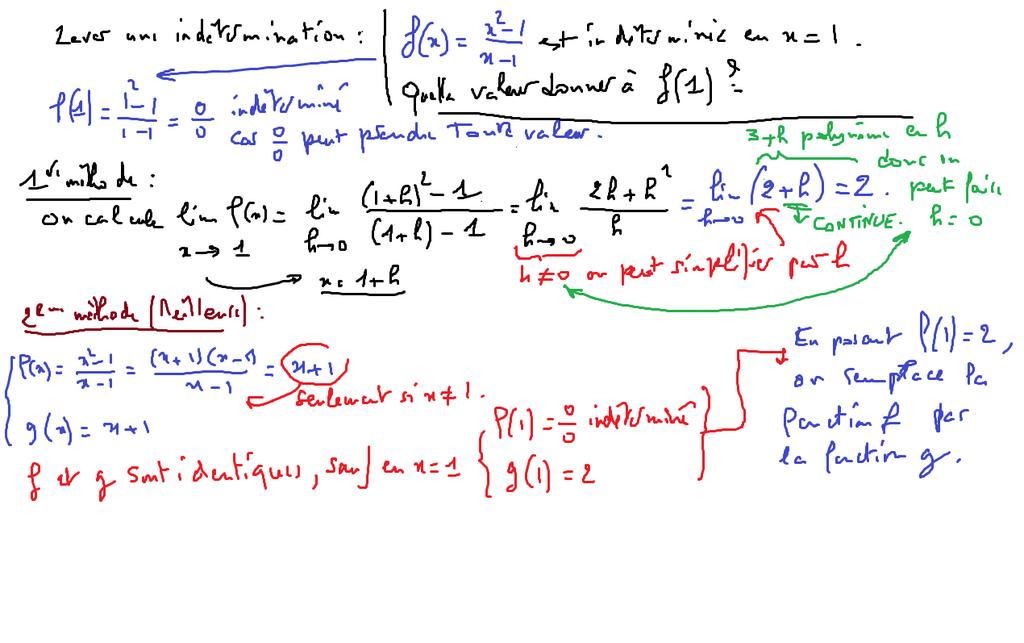 Lever une indétermination :
f(x) = (x²-1)/(x-1) est indéterminée en x = 1.
Quelle valeur donner à f(1) ?
f(1) = (1²-1)/(1-1) = 0/0 indéterminé
car 0/0 peut prendre toute valeur.
1ère méthode :
on calcule lim x→1 f(x) = lim h→0 ((1+h)²-1)/((1+h)-1) = lim h→0 (2h+h²)/h = lim h→0 (2+h) = 2.
x = 1+h
h≠0 on peut simplifier par h
3+h polynôme en h
donc on
peut faire
h = 0
CONTINUE.
2ème méthode (Meilleure) :
f(x) = (x²-1)/(x-1) = ((x+1)(x-1))/(x-1) = x+1
seulement si x≠1.
g(x) = x+1
f et g sont identiques, sauf en x=1
f(1) = 0/0 indéterminé
g(1) = 2
En posant f(1) = 2,
on remplace la
fonction f par
la fonction g.